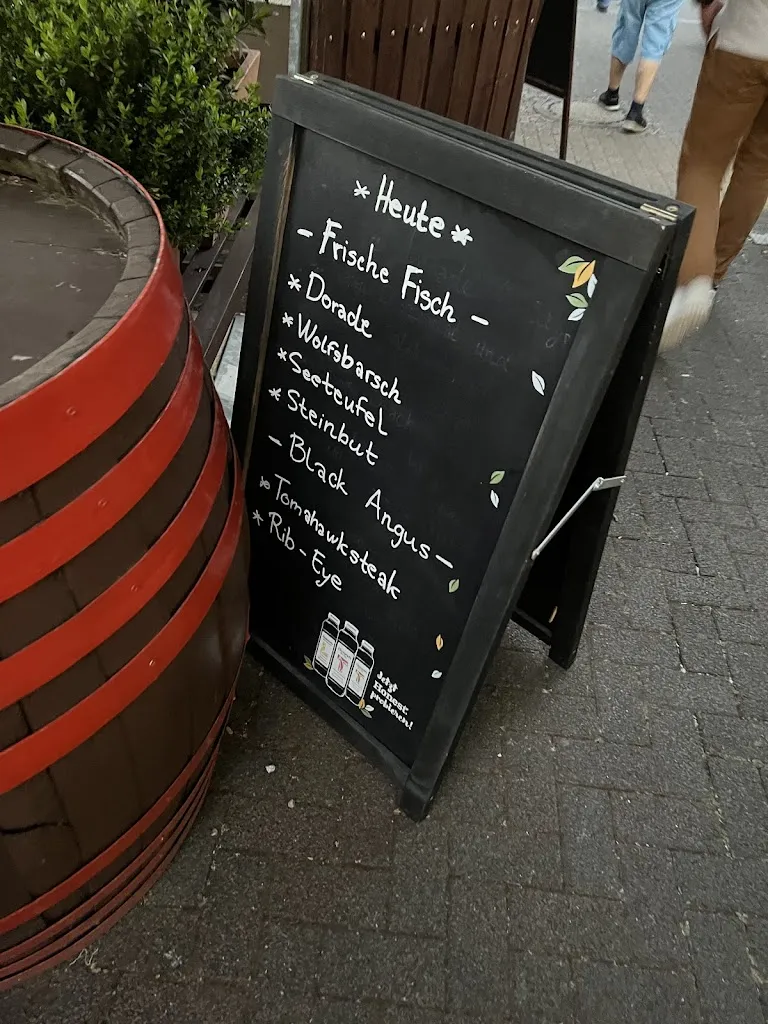 * Heute *
- Frische Fisch -
* Dorade
* Wolfsbarsch
* Seeteufel
* Steinbut
- Black Angus -
* Tomahawksteak
* Rib - Eye
Jetzt
Honest
probieren!